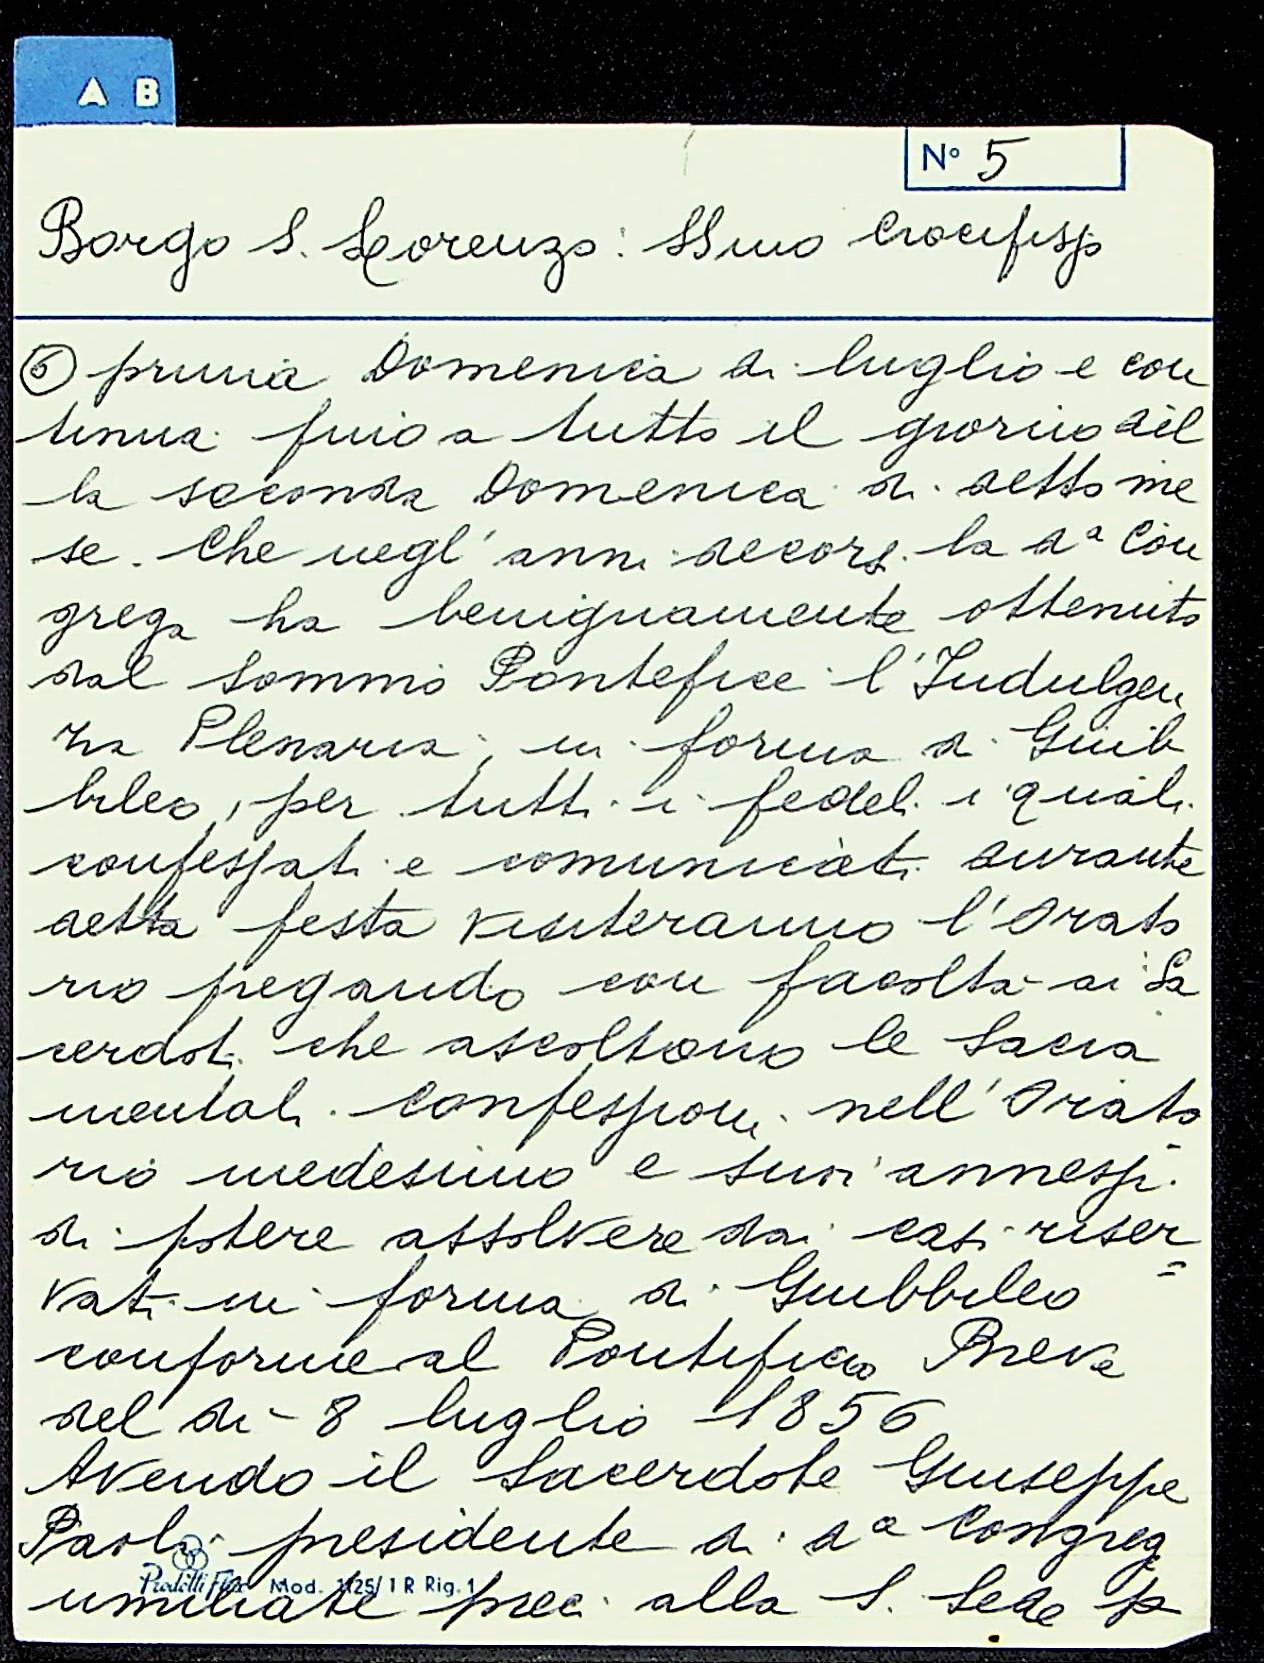 A B
N° 5
Borgo S. Lorenzo: SSmo Crocifisso
⑤ prima Domenica di luglio e con
tinua fino a tutto il giorno del
la seconda Domenica di detto me
se. Che negl'anni decorsi la da Con
grega ha benignamente ottenuto
dal Sommo Pontefice l'Indulgen
za Plenaria, in forma di Giub
bileo, per tutti i fedeli i quali
confessati e comunicati durante
detta festa visiteranno l'Orato
rio pregando con facoltà ai Sa
cerdoti che ascoltono le Sacra
mentali Confessioni nell'Orato
rio medesimo e suoi annessi
di potere assolvere dai casi riser=
vati in forma di Giubbileo
conforme al Pontificio Breve
del dì 8 luglio 1856
Avendo il Sacerdote Giuseppe
Paoli presidente di da Congreg
umiliate preci alla S. Sede p
Mod. 1125/1 R Rig. 1